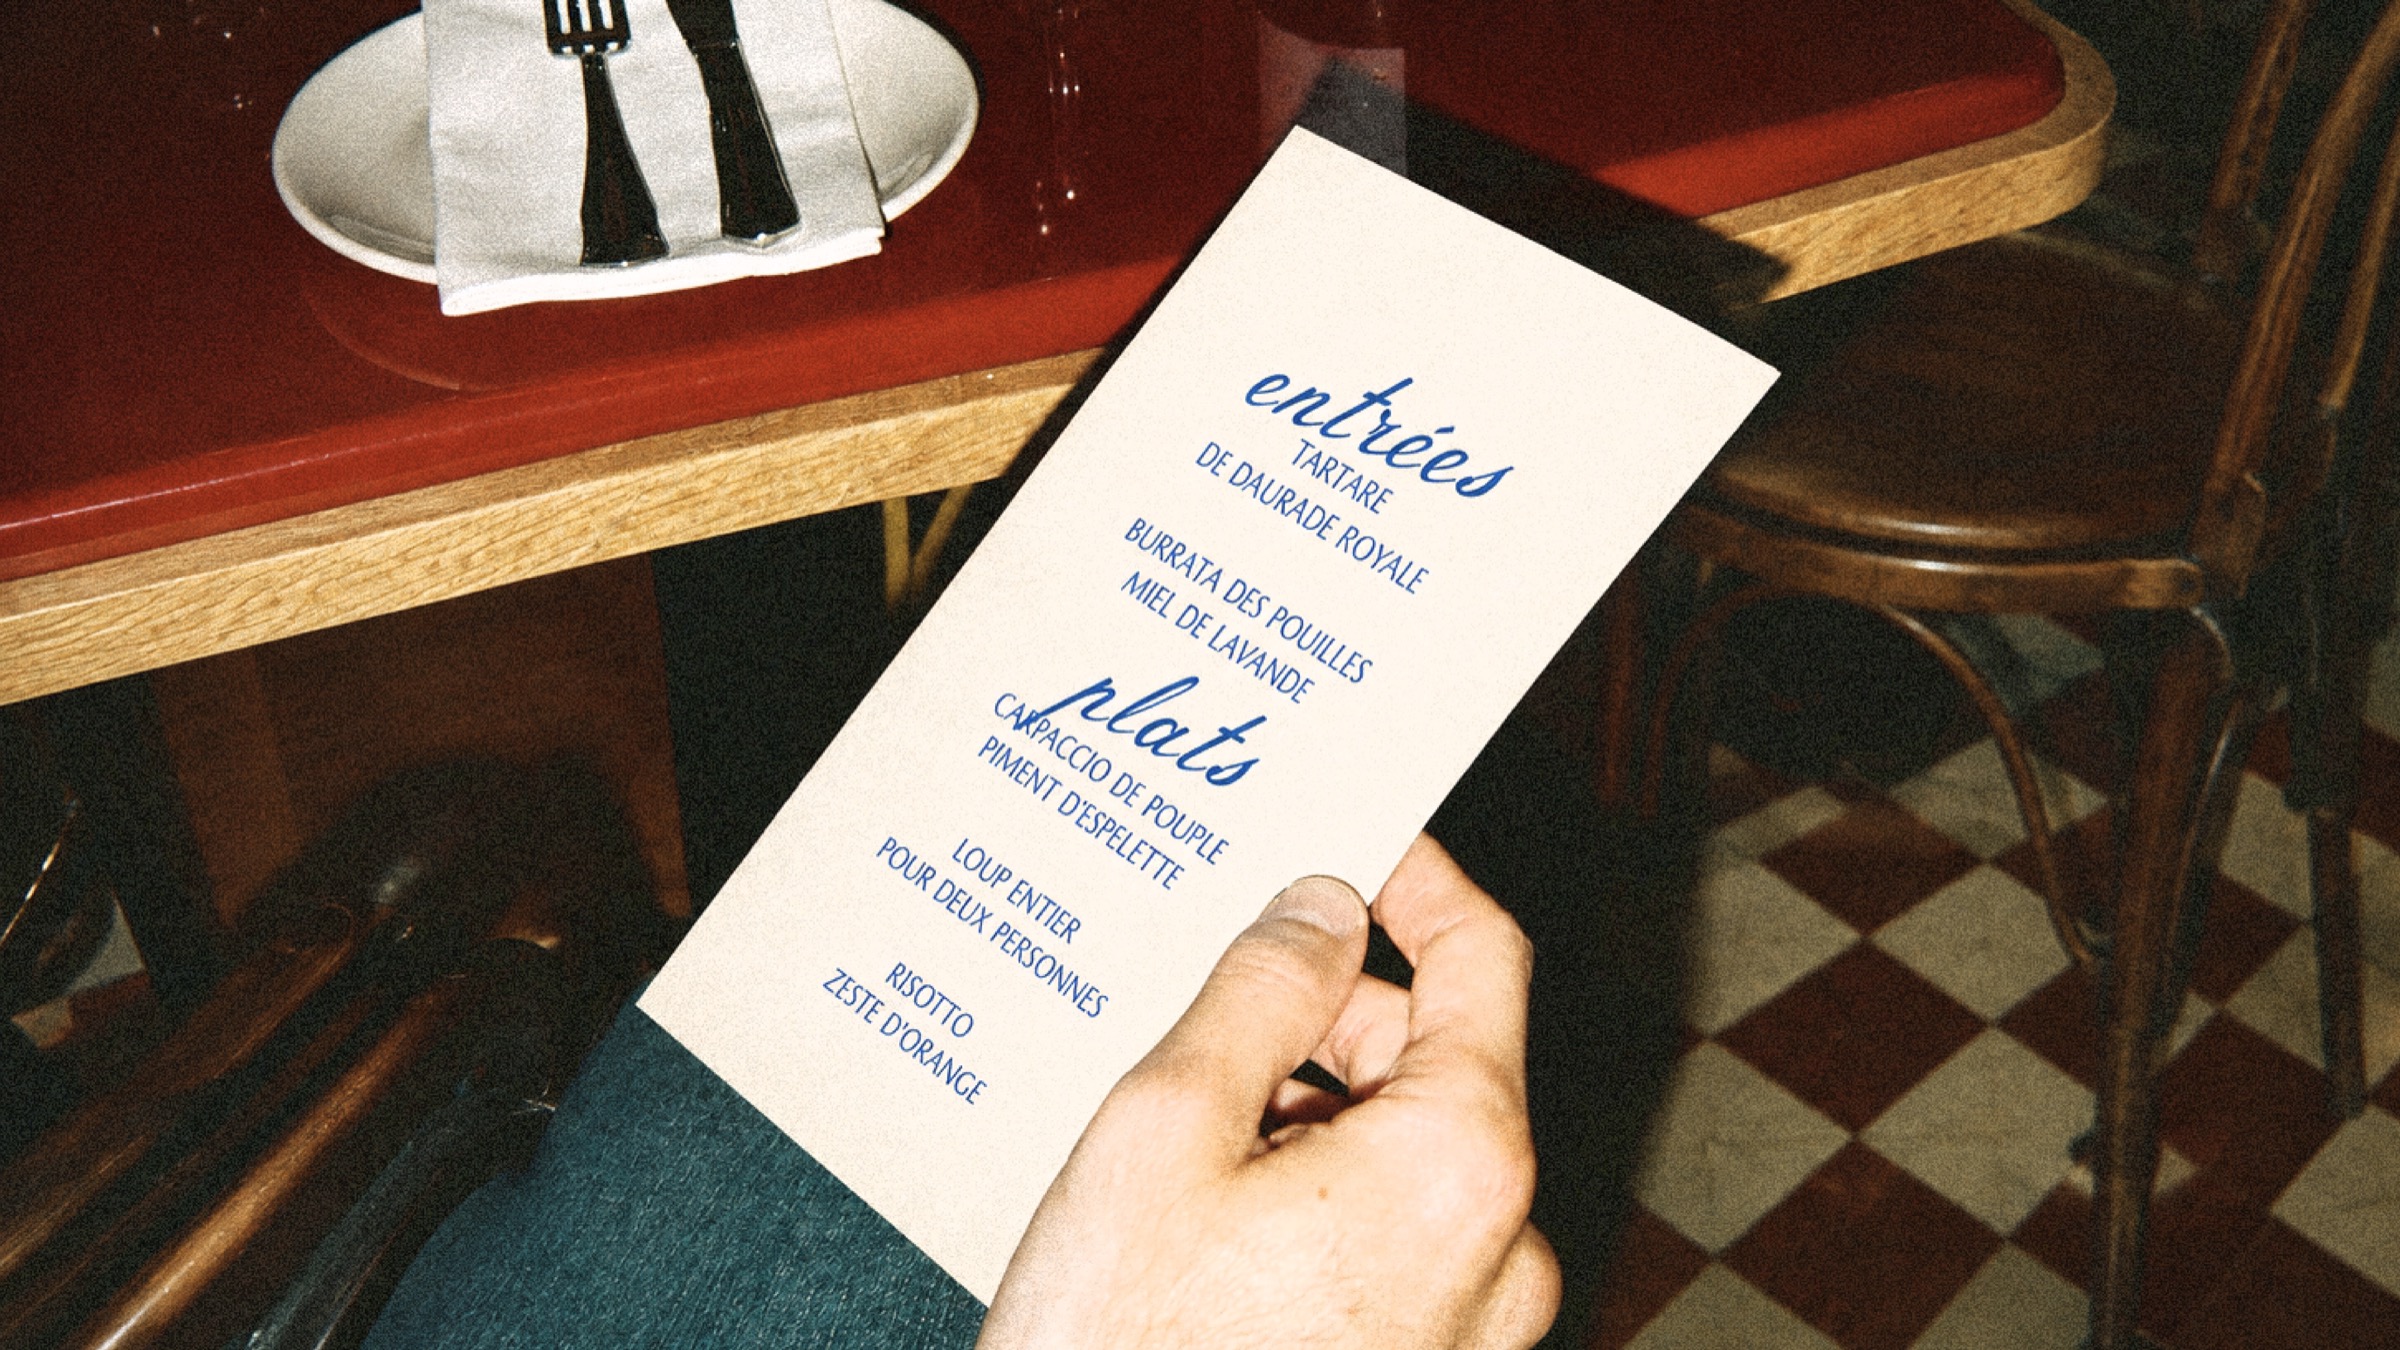 entrées
TARTARE
DE DAURADE ROYALE
BURRATA DES POUILLES
MIEL DE LAVANDE
plats
CARPACCIO DE POUPLE
PIMENT D'ESPELETTE
LOUP ENTIER
POUR DEUX PERSONNES
RISOTTO
ZESTE D'ORANGE